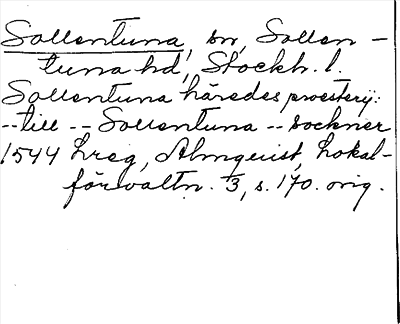 Sollentuna, sn, Sollen-
tuna hd, Stockh. l.
Sollentuna häredes proestery:
-- till -- Sollentuna -- sockner
1544 Lreg, Almquist, Lokal-
förvaltn. 3, s. 170. orig.